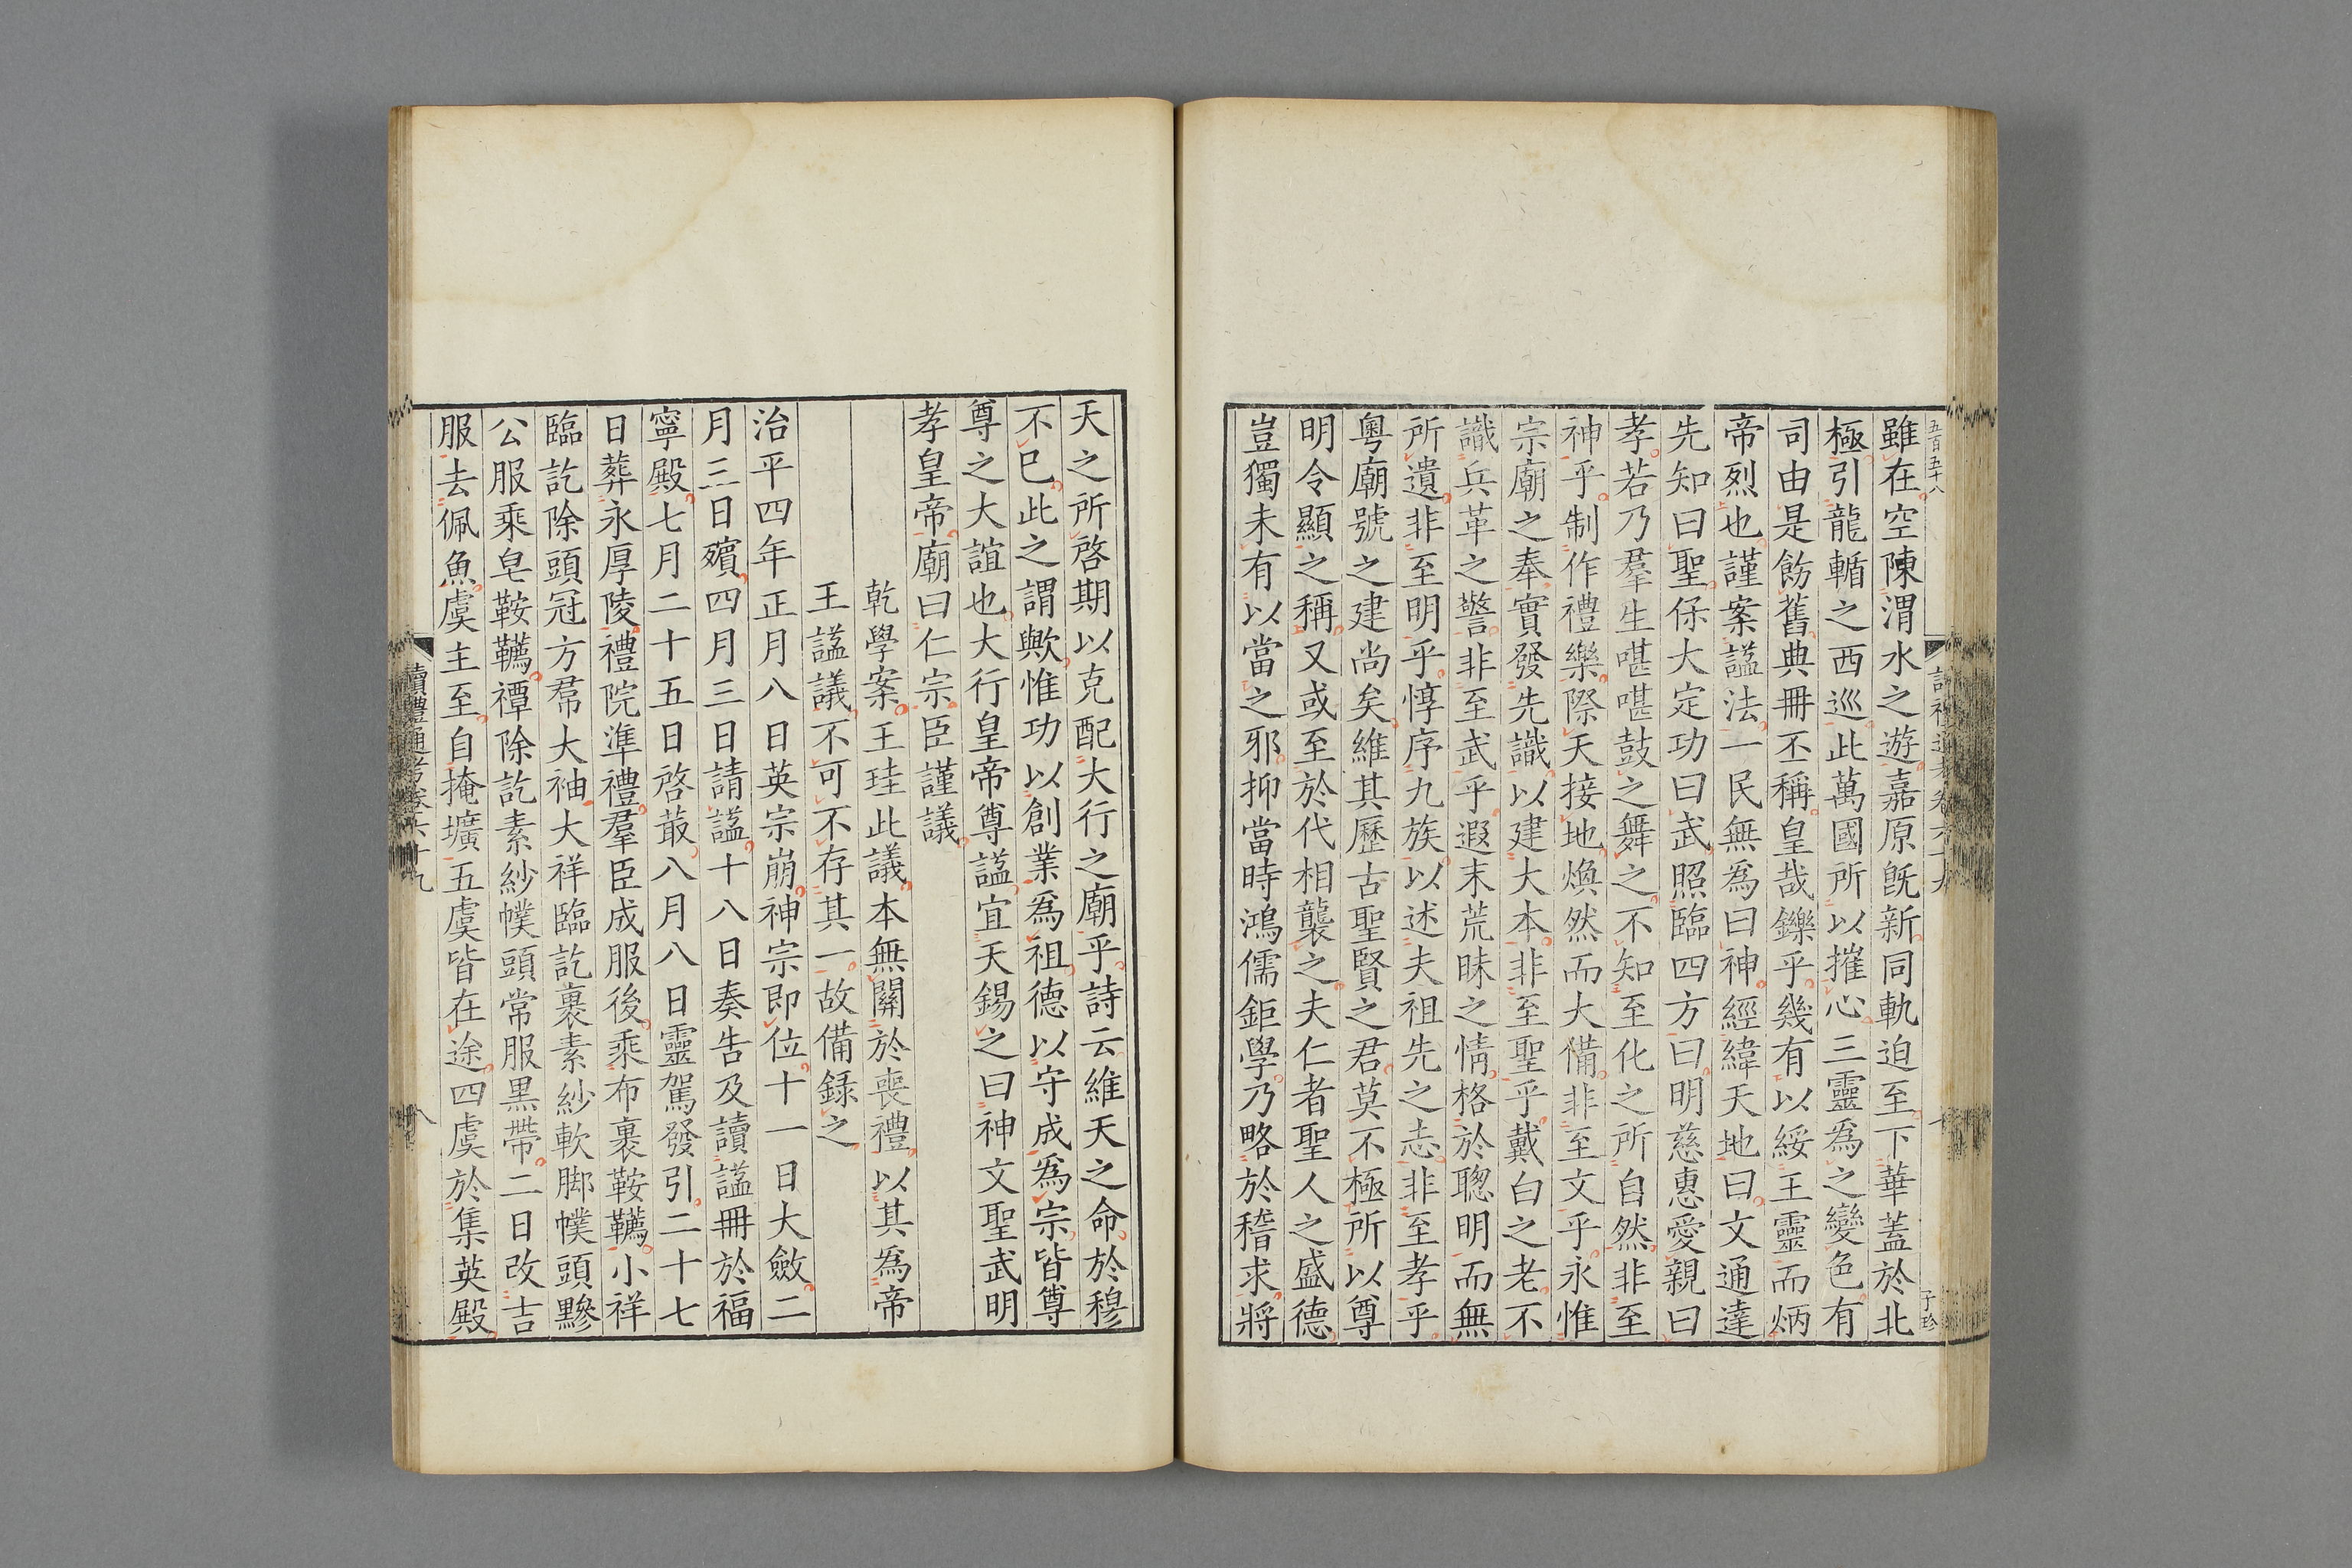 五百五十八
雖在空陳渭水之遊嘉原旣新同軌迫至下華蓋於北
極引龍輴之西巡此萬國所以摧心三靈爲之變色有
司由是飭舊典冊丕稱皇哉鑠乎幾有以綏王靈而炳
帝烈也謹案諡法一民無爲曰神經緯天地曰文通達
先知曰聖保大定功曰武照臨四方曰明慈惠愛親曰
孝若乃羣生喁喁鼓之舞之不知至化之所自然非至
神乎制作禮樂際天接地煥然而大備非至文乎永惟
宗廟之奉實發先識以建大本非至聖乎戴白之老不
識兵革之警非至武乎遐末荒昧之情格於聰明而無
所遺非至明乎惇序九族以述夫祖先之志非至孝乎
粵廟號之建尚矣維其歷古聖賢之君莫不極所以尊
明令顯之稱又或至於代相襲之夫仁者聖人之盛德
豈獨未有以當之邪抑當時鴻儒鉅學乃略於稽求將
天之所啓期以克配大行之廟乎詩云維天之命於穆
不已此之謂歟惟功以創業爲祖德以守成爲宗皆尊
尊之大誼也大行皇帝尊諡宜天錫之曰神文聖武明
孝皇帝廟曰仁宗臣謹議
乾學案王珪此議本無關於喪禮以其爲帝
王諡議不可不存其一故備録之
治平四年正月八日英宗崩神宗即位十一日大斂二
月三日殯四月三日請諡十八日奏告及讀諡冊於福
寧殿七月二十五日啓菆八月八日靈駕發引二十七
日葬永厚陵禮院準禮羣臣成服後乘布裹鞍韉小祥
臨訖除頭冠方帬大袖大祥臨訖裹素紗軟脚幞頭黲
公服乘皂鞍韉禫除訖素紗幞頭常服黑帶二日改吉
服去佩魚虞主至自掩壙五虞皆在途四虞於集英殿
讀禮通考卷六十九
八